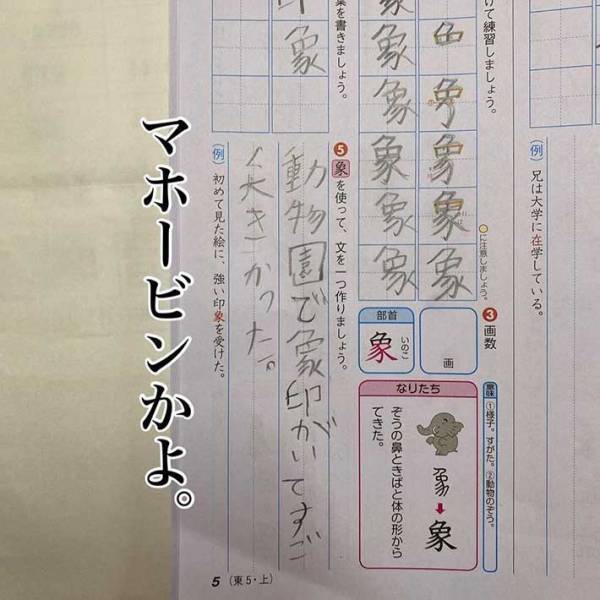 (例) 兄は大学に在学している。
けて練習しましょう。
○に注意しましょう。
象
象
象
象
象
象
❸画数
画
部首
象
いのこ
意味 ①様子。すがた。②動物のぞう。
なりたち
象
ぞうの鼻ときばと体の形から
できた。
葉を書きましょう。
印象
❺象を使って、文を一つ作りましょう。
動物園で象印がいてすご
く大きかった。
(例) 初めて見た絵に、強い印象を受けた。
マホービンかよ。
5 (東5・上)